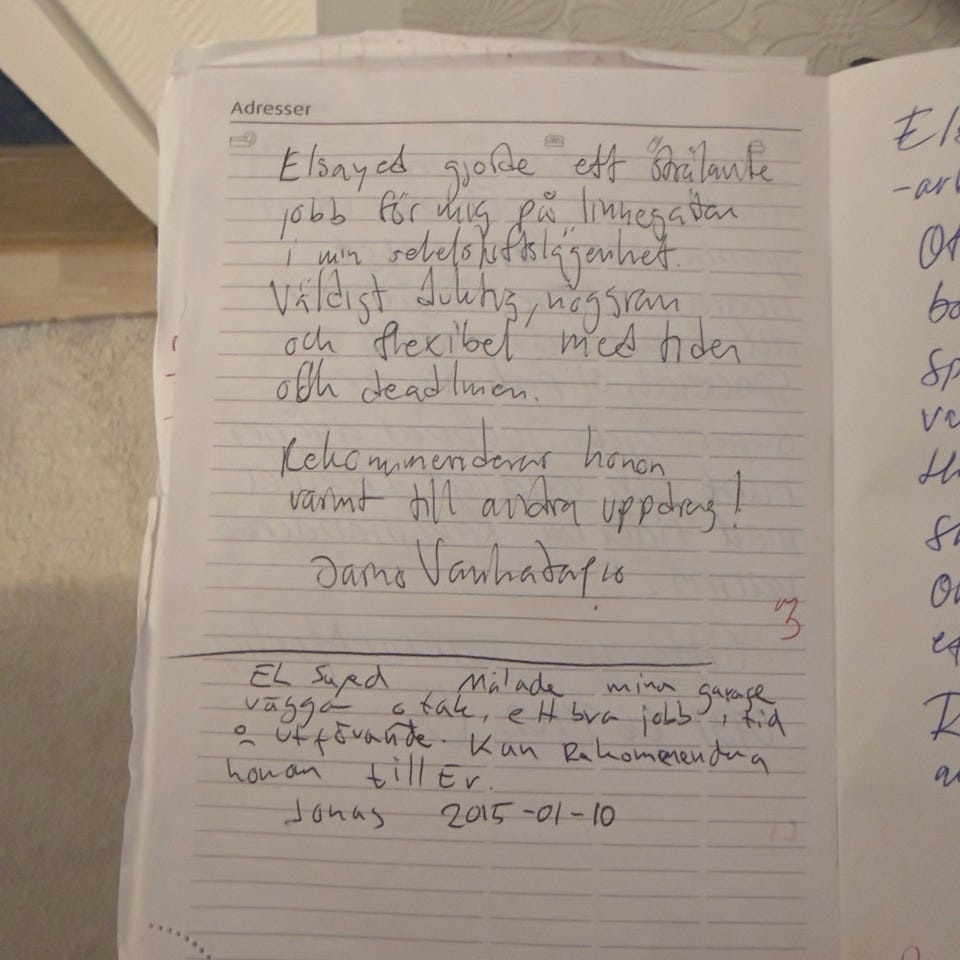 Adresser
Elsayed gjorde ett strålante
jobb för mig på linnegatan
i min sekelskiftslägenhet.
Väldigt duktig, noggran
och flexibel med tider
och deadlinen.
Rekommenderar honon
varmt till andra uppdrag!
Jarno
3
EL Sayed Målade mina garage
väggar o tak, ett bra jobb i tid
o utförande. Kan Rekomenendra
honan till Er.
Jonas 2015-01-10
Els
-ar